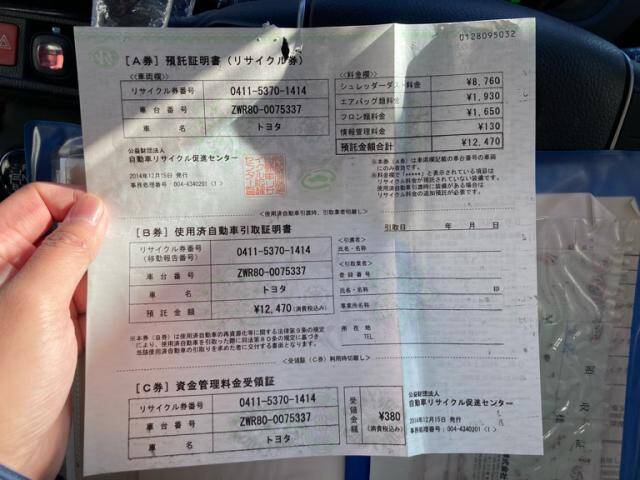 0128095032
[A券] 預託証明書 (リサイクル券)
<車両欄>
リサイクル券番号 0411-5370-1414
車台番号 ZWR80-0075337
車名 トヨタ
公益財団法人
自動車リサイクル促進センター
2014年12月15日 発行
事務処理番号:004-4340201 (1)
<料金欄>
シュレッダーダスト料金 ¥8,760
エアバッグ類料金 ¥1,930
フロン類料金 ¥1,650
情報管理料金 ¥130
預託金額合計 ¥12,470
※本券(A券)は車両欄記載の車台番号の車両
にのみ有効です。
<使用済自動車引渡時、引取業者切離し>
[B券] 使用済自動車引取証明書
リサイクル券番号 0411-5370-1414
(移動報告番号)
車台番号 ZWR80-0075337
車名 トヨタ
預託金額 ¥12,470 (消費税込み)
引取日 年 月 日
<引渡者>
氏名・名称
<引取業者>
登録番号
氏名・名称 印
事業所名称
所在地
TEL
※本券(B券)は使用済自動車の再資源化等に関する法律第9条の規定
により、使用済自動車を引取った際に同法第80条の規定に基づき
当該使用済自動車の引取りを求めた者に交付する書面となります。
<受領証(C券)利用時切離し>
[C券] 資金管理料金受領証
リサイクル券番号 0411-5370-1414
車台番号 ZWR80-0075337
車名 トヨタ
受領金額 ¥380
(消費税込み)
公益財団法人
自動車リサイクル促進センター
2014年12月15日 発行
事務処理番号:004-4340201 (1)